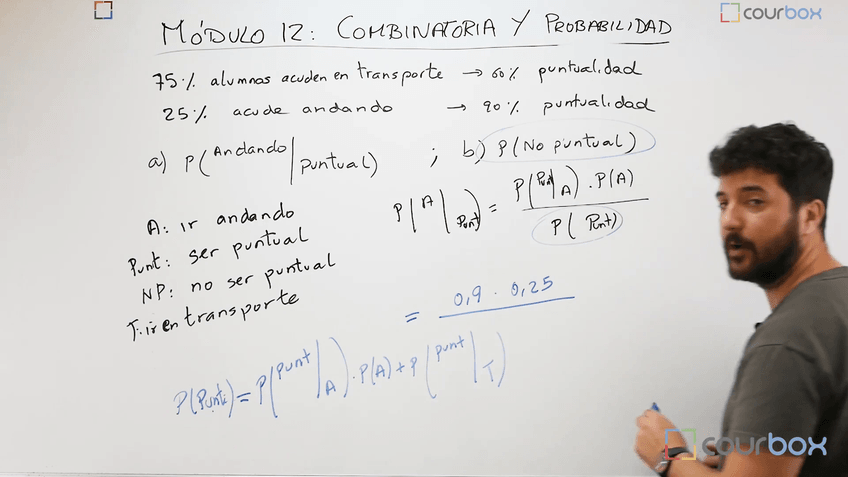 courbox
MÓDULO 12: COMBINATORIA Y PROBABILIDAD
75% alumnos acuden en transporte → 60% puntualidad
25% acude andando → 90% puntualidad
a) P(Andando|puntual) ; b) P(No puntual)
P(A|Punt) = P(Punt|A) · P(A)
P(Punt)
A: ir andando
Punt: ser puntual
NP: no ser puntual
T: ir en transporte
= 0,9 · 0,25
P(Punt) = P(punt|A) · P(A) + P(punt|T)
courbox